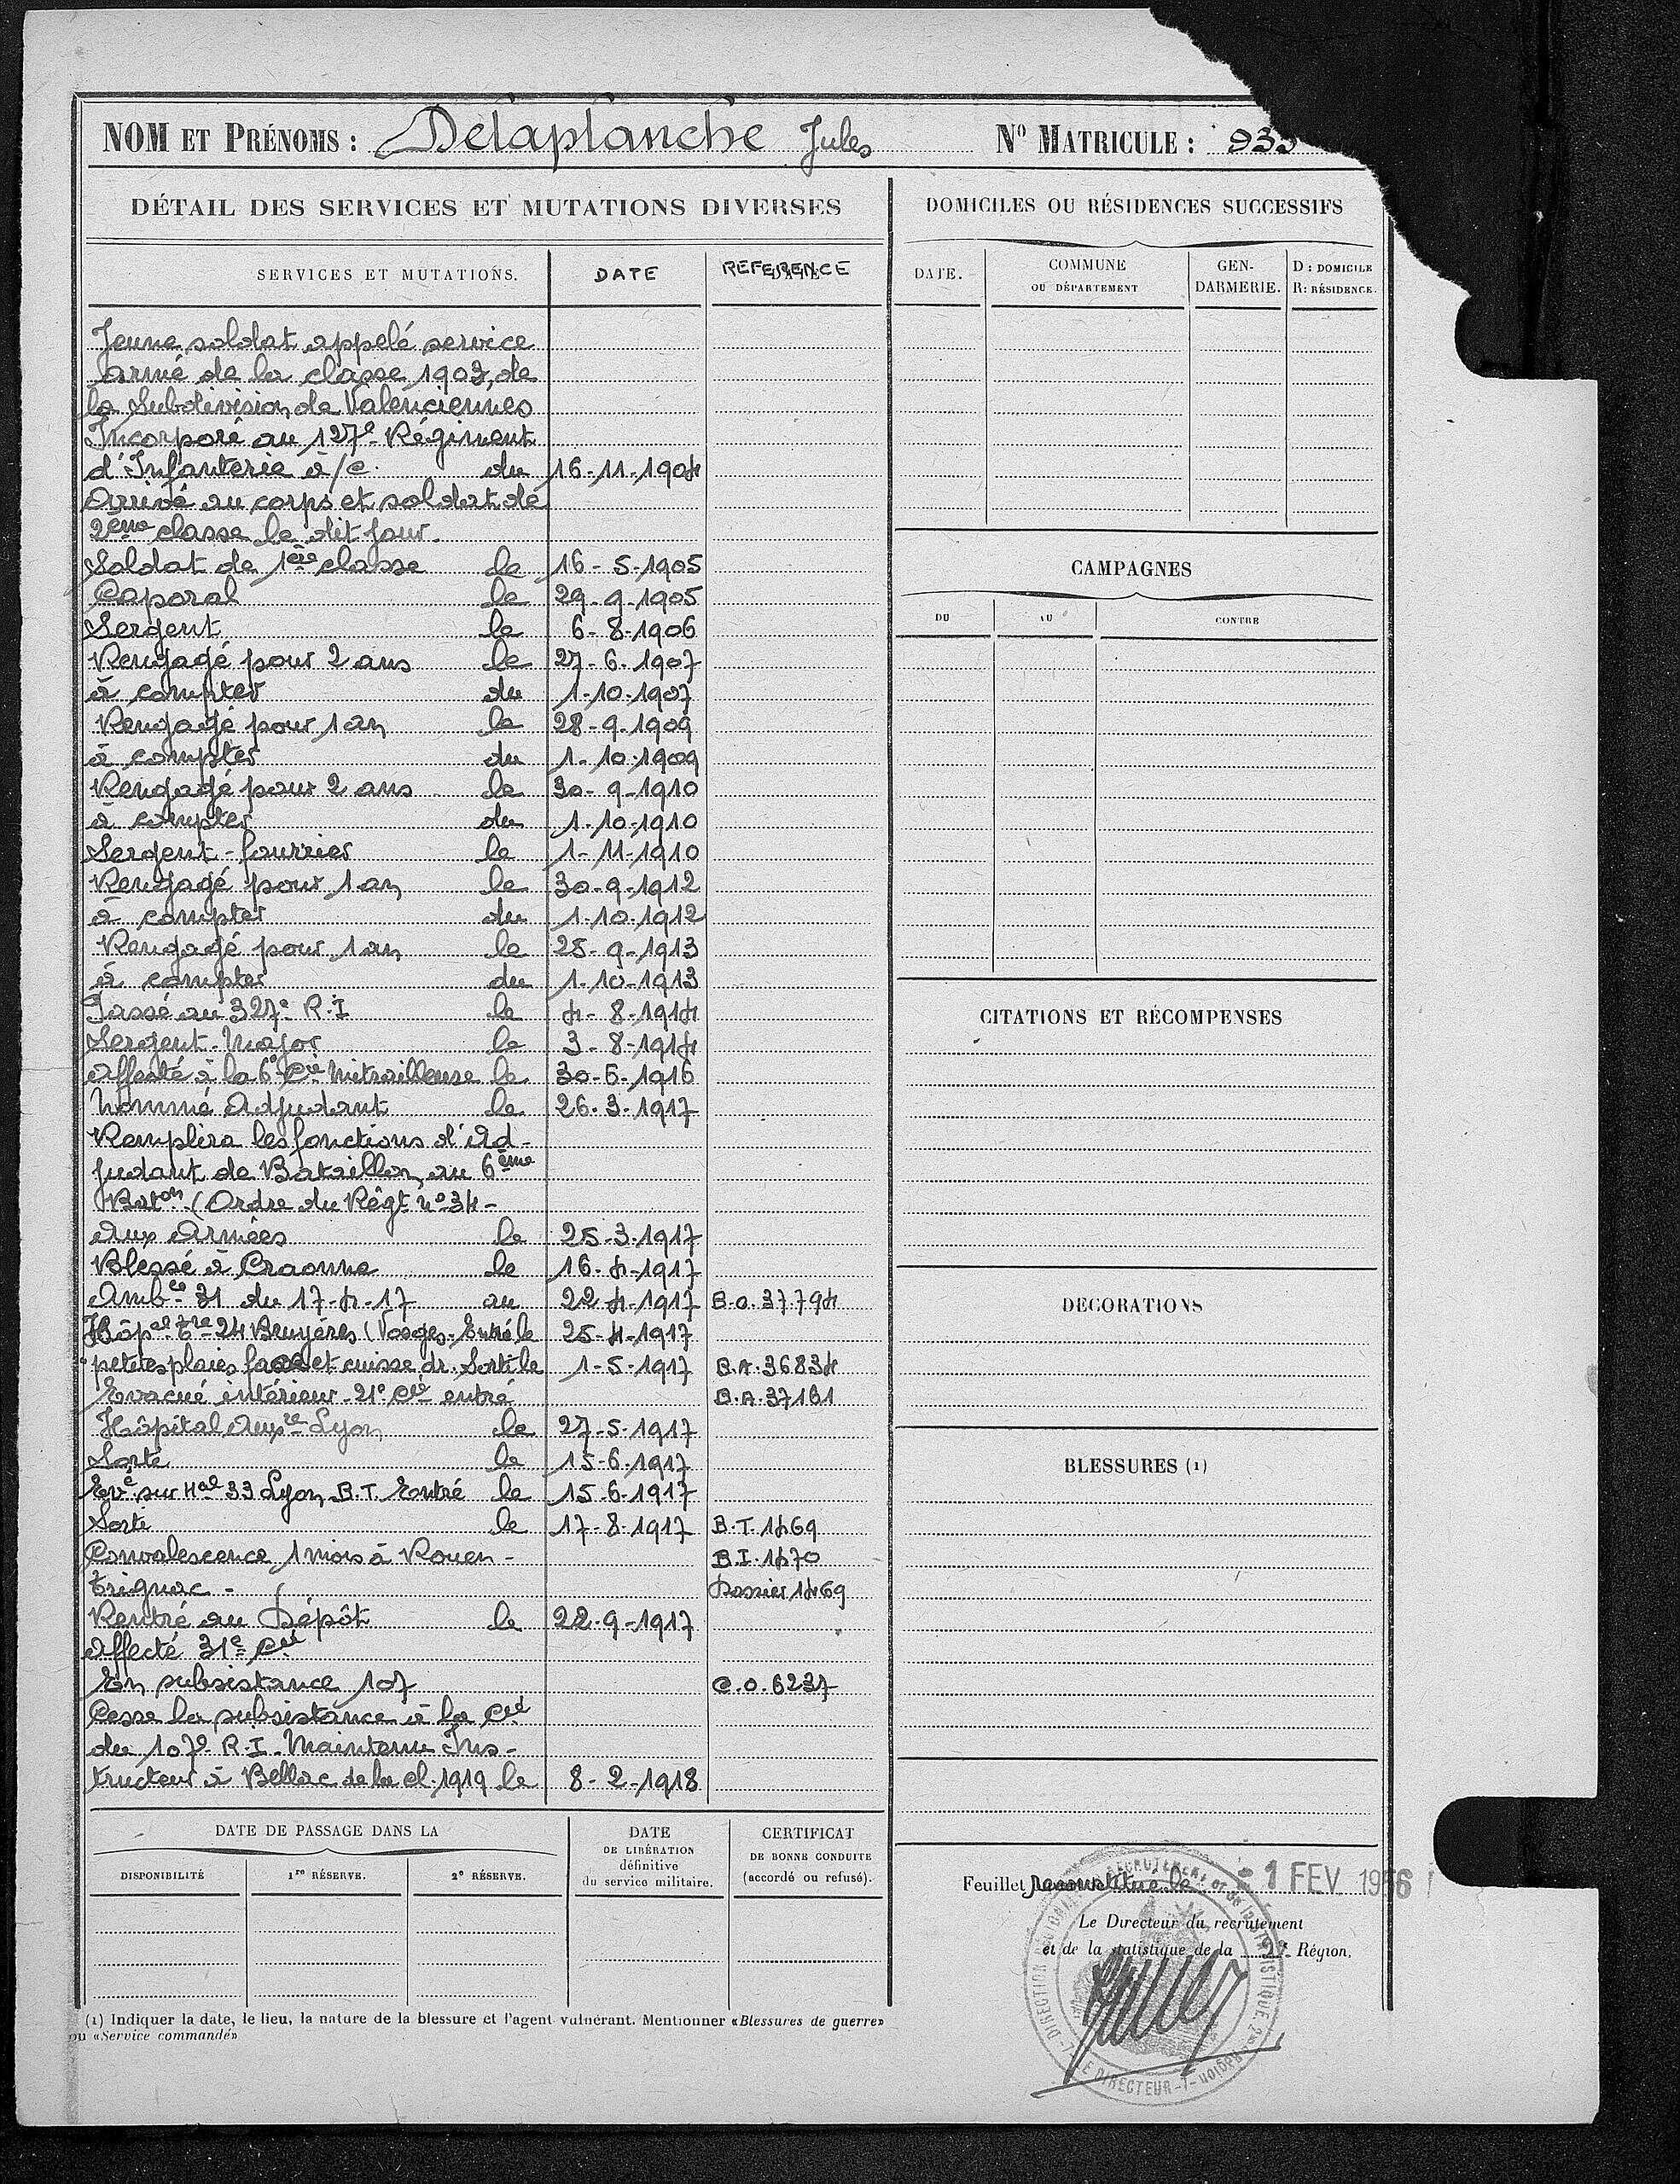 NOM ET PRÉNOMS : Delaplanche Jules N° MATRICULE : 933
DÉTAIL DES SERVICES ET MUTATIONS DIVERSES
SERVICES ET MUTATIONS. DATE REFERENCE
Jeune soldat appelé service
armé de la classe 1903, de
la Subdivision de Valenciennes
Incorporé au 127e Régiment
d'Infanterie à/c. du 16-11-1904
Arrivé au corps et soldat de
2ème classe le dit jour.
Soldat de 1ère classe le 16-5-1905
Caporal le 29-9-1905
Sergent le 6-8-1906
Rengagé pour 2 ans le 27-6-1907
à compter du 1-10-1907
Rengagé pour 1 an le 28-9-1909
à compter du 1-10-1909
Rengagé pour 2 ans le 30-9-1910
à compter du 1-10-1910
Sergent-fourrier le 1-11-1910
Rengagé pour 1 an le 30-9-1912
à compter du 1-10-1912
Rengagé pour 1 an le 25-9-1913
à compter du 1-10-1913
Passé au 327e R.I le 4-8-1914
Sergent-Major le 3-8-1914
Affecté à la 6e Cie Mitrailleuse le 30-5-1916
Nommé Adjudant le 26-3-1917
Remplira les fonctions d'Ad-
judant de Bataillon au 6ème
Baton (Ordre du Régt n°34-
Aux Armées le 25-3-1917
Blessé à Craonne le 16-4-1917
Ambce 31 du 17-4-17 au 22-4-1917 B.O.37.794
Hôpal 24 Bruyères (Vosges-Entré le 25-4-1917
petites plaies face et cuisse dr. Sorti le 1-5-1917 B.A.36834
Evacué intérieur-21e Cie entré B.A.37181
Hôpital Auxre Lyon le 27-5-1917
Sorti le 15-6-1917
Evé sur Hal 33 Lyon B.T. Entré le 15-6-1917
Sorti le 17-8-1917 B.T.1469
Convalescence 1 mois à Rouen- B.I.1470
Trignac- Dossier 1469
Rentré au Dépôt le 22-9-1917
Affecté 31e Cie
En subsistance 107 C.O.6237
Cesse la subsistance à la Cie
du 107e R.I. Maintenu Ins-
tructeur à Bellac de la cl.1919 le 8-2-1918
DATE DE PASSAGE DANS LA
DISPONIBILITÉ 1re RÉSERVE. 2e RÉSERVE.
DATE
DE LIBÉRATION
définitive
du service militaire.
CERTIFICAT
DE BONNE CONDUITE
(accordé ou refusé).
(1) Indiquer la date, le lieu, la nature de la blessure et l'agent vulnérant. Mentionner «Blessures de guerre»
ou «Service commandé»
DOMICILES OU RÉSIDENCES SUCCESSIFS
DATE. COMMUNE GEN- D : DOMICILE
OU DÉPARTEMENT DARMERIE. R: RÉSIDENCE.
CAMPAGNES
DU AU CONTRE
CITATIONS ET RÉCOMPENSES
DECORATIONS
BLESSURES (1)
Feuillet reconstitué le - 1 FEV 1956
Le Directeur du recrutement
et de la statistique de la 2e Région.